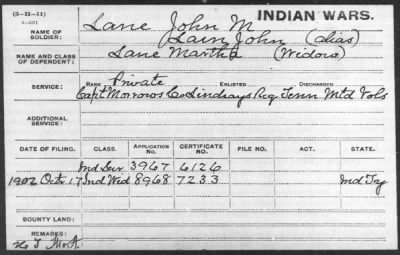 (3-11-11)
INDIAN WARS.
NAME OF SOLDIER: Lane John M
Lain John (alias)
NAME AND CLASS OF DEPENDENT: Lane Martha (Widow)
SERVICE: RANK Private ENLISTED DISCHARGED
Capt Morrows Co Lindsays Reg Tenn Mtd Vols
ADDITIONAL SERVICE:
DATE OF FILING. CLASS. APPLICATION NO. CERTIFICATE NO. FILE NO. ACT. STATE.
Ind Sur 3967 6126
1902 Oct 17 Ind Wid 8968 7233 Ind Try
BOUNTY LAND:
REMARKS: